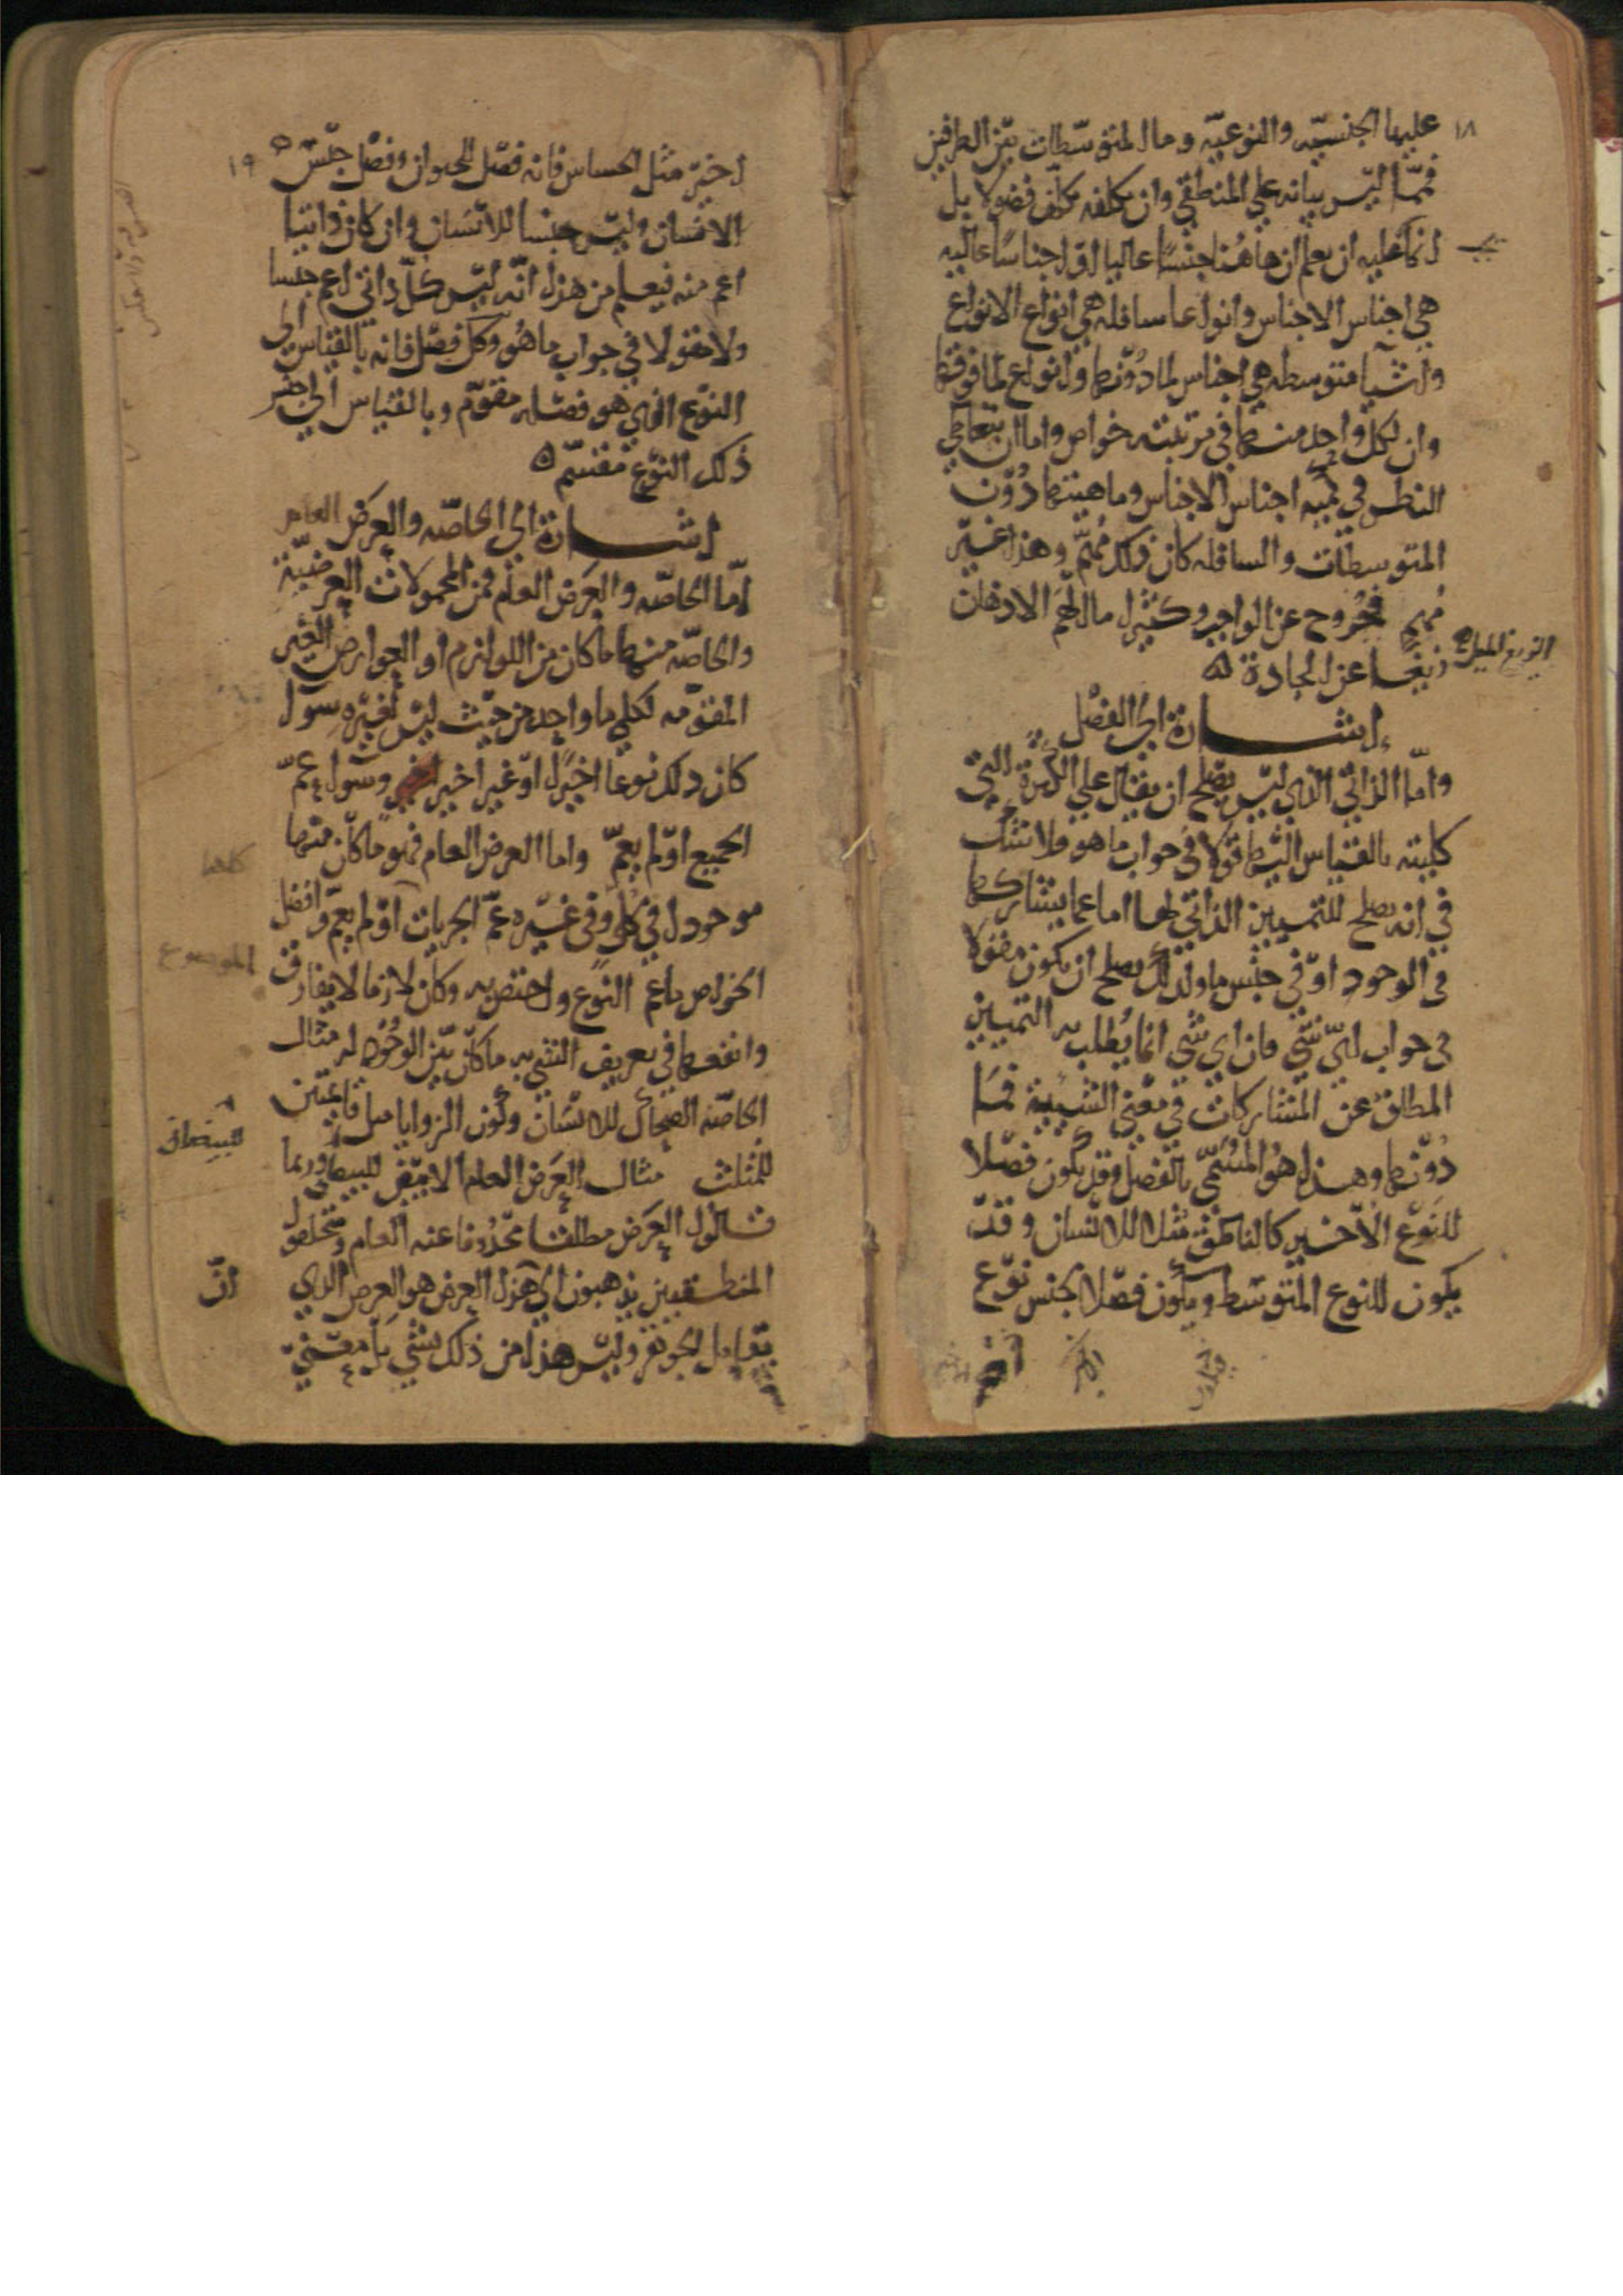 ١٨
عليها الجنسيّه والنوعيّه وما المتوسّطات بيّن الطرفين
فممّا ليّس بيانه علي المنطقي وان تكلفه تكلّف فضولا بل
يجب
انما عليه ان يعلم ان هاهُنا جنسًا عاليا او اجناسًا عاليه
هي اجناس الاجناس وانواعا سافله هي انواع الانواع
واشيا متوسطه هي اجناس لما دُوّنها وانواع لما فوقها
وان لكل واحد منها في مرتبته خواص واما ان يتعاطي
النظر في كميّه اجناس الاجناس وماهيتها دُوّن
المتوسطات والسافله كان ذلك مُهمّ وهذا غيّر
مُهم فخُروج عن الواجب وكثيرا ما الهَم الاذهان
زيغا عن الجادة ه
الزيغ الميل
اشارة الي الفصْل
وامّا الذاتي الذي ليّس يصْلح ان يقال علي الكثرة التي
كليته بالقياس اليها قوّلا في جواب ما هو فلا شكّ
في انه يصلح للتمييز الذاتي لها اما عما يشاركها
في الوجود اوّ في جنْس ما ولذلك يصلح ان يكون مقولا
في جواب ايّ شّي فان اي شي انما يُطلب به التمييز
المطلق عن المشاركات في معْني الشيّية فمَا
دُوّنها وهذا هوُ المسُمّي بالفصْل وقد يكون فصّلا
للنوّع الاّخير كالناطق مثلا للانسان وقدّ
يكون للنوع المتوسّط ويكون فصّلا لجنس نوّع
١٩
اخيّر مثل الحساس فانه فصّل للحيوان وفصْل جنّس
الانسان وليّس جنسا للانسَان وان كان ذاتيا
اعم منه فيعلم من هذا انّه ليّس كلّ ذاتي اعم جنسا
ولا مقولا في جواب ما هُو وكلّ فصّل فانه بالقياس الي
النوّع الذي هو فصّله مقوّم وبالقياس الي جنس
ذلك النوّع مقسّم ه
اشارة الي الخاصّه والعرَض العام
امّا الخاصّه والعَرَض العام فمن المحمولات العرضيّة
والخاصّه منها ما كان من اللوازم او العوارض الغيّر
المقوّمه لكلي ما واحد من حيّث ليّس لغيّره سوا
كان ذلك نوعا اخيًرا اوّ غير اخير وسَوا عمّ
الجميع اوّ لم يعمّ واما العرض العام فهو ما كان منها
كلها
موجودا في كلي وفي غيّره عمّ الجزيات اوّ لم يعمّ وافضل
الخواص ما عم النوّع واختص به وكان لازما لا يفارق
الموضوع
وانفعها في تعريف الشي به ما كان بيّن الوجُود له مثال
الخاصّه الضحاك للانسّان وكُون الزوايا مثل قايمتيّن
للمثلث مثال العَرَض العام الابيّض للببغا وربما
للبيضاني
قالوا العَرَض مطلقا محذُوفا عنه العام ومتخلفوا
المنطقيين يذهبون الي هذا العرض هو العرض الذي
انّ
يقابل الجوهر وليّس هذا من ذلك بشّي بل معّني